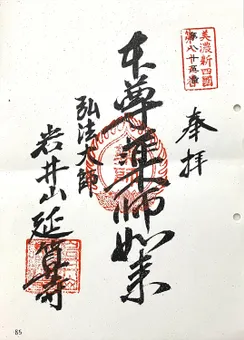 美濃新四國
奉拝
本尊薬師如来
弘法大師
岩井山延算寺
85